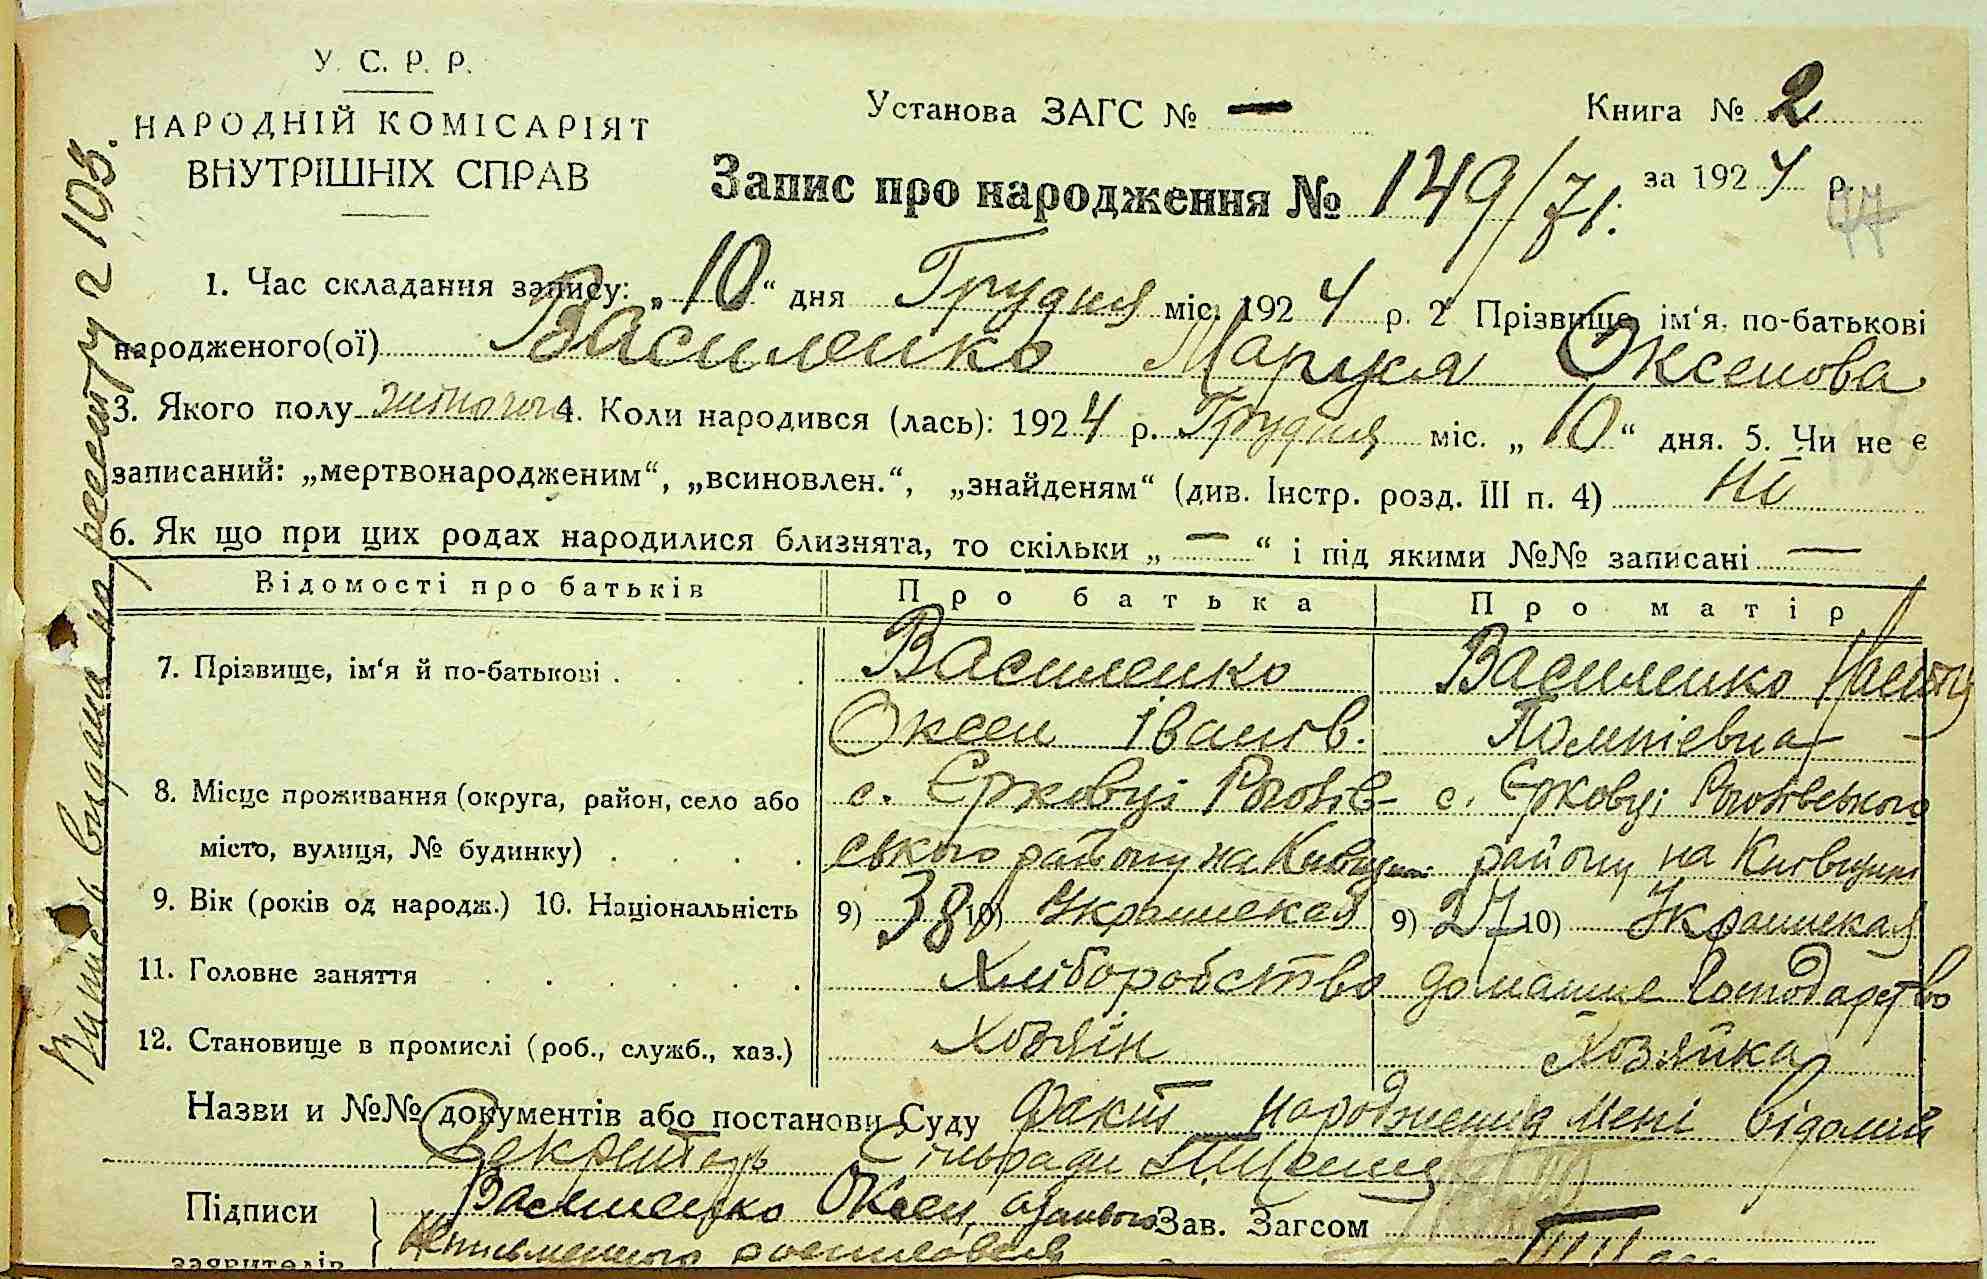 У. С. Р. Р.
НАРОДНІЙ КОМІСАРІЯТ
ВНУТРІШНІХ СПРАВ
Установа ЗАГС № —
Книга № 2
Запис про народження № 149/71. за 1924 р.
1. Час складання запису: „10“ дня Грудня міс. 1924 р. 2 Прізвище, ім‘я, по-батькові
народженого(ої) Василенко Маруся Оксенова
3. Якого полу жіночого 4. Коли народився (лась): 1924 р. Грудня міс. „10“ дня. 5. Чи не є
записаний: „мертвонародженим“, „всиновлен.“, „знайденям“ (див. Інстр. розд. III п. 4) Ні
6. Як що при цих родах народилися близнята, то скільки „—“ і під якими №№ записані —
Відомості про батьків Про батька Про матір
7. Прізвище, ім‘я й по-батькові . . . . Василенко Василенко
Оксен Іванів.
8. Місце проживання (округа, район, село або с. Єрковці Рогозів- с. Єрковці Рогозівського
місто, вулиця, № будинку) . . . . ського району на Київщ. району на Київщині
9. Вік (років од народж.) 10. Національність 9) 38 10) Украинская 9) 27 10) Украинская
11. Головне заняття . . . . . . Хліборобство домашне Господарство
12. Становище в промислі (роб., служб., хаз.) Хозяін Хозяйка
Назви и №№ документів або постанови Суду Факт народження мені відомий
Секретарь Сільради
Підписи Василенко Оксен, Зав. Загсом
заявителів неписьменного росписався
Виписъ видана на